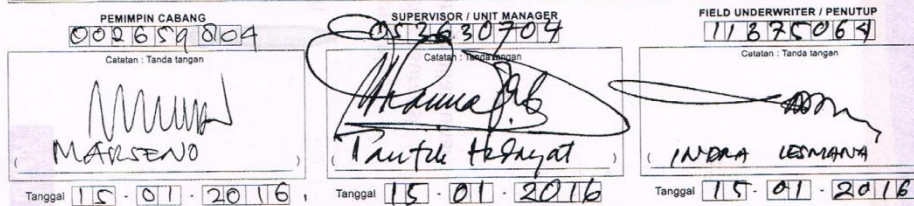 PEMIMPIN CABANG
002659804
Catatan : Tanda tangan
( MARSENO )
Tanggal 15 - 01 - 2016
SUPERVISOR / UNIT MANAGER
053630704
Catatan : Tanda tangan
( Taufik Hidayat )
Tanggal 15 - 01 - 2016
FIELD UNDERWRITER / PENUTUP
11375064
Catatan : Tanda tangan
( INDRA LESMANA )
Tanggal 15 - 01 - 2016